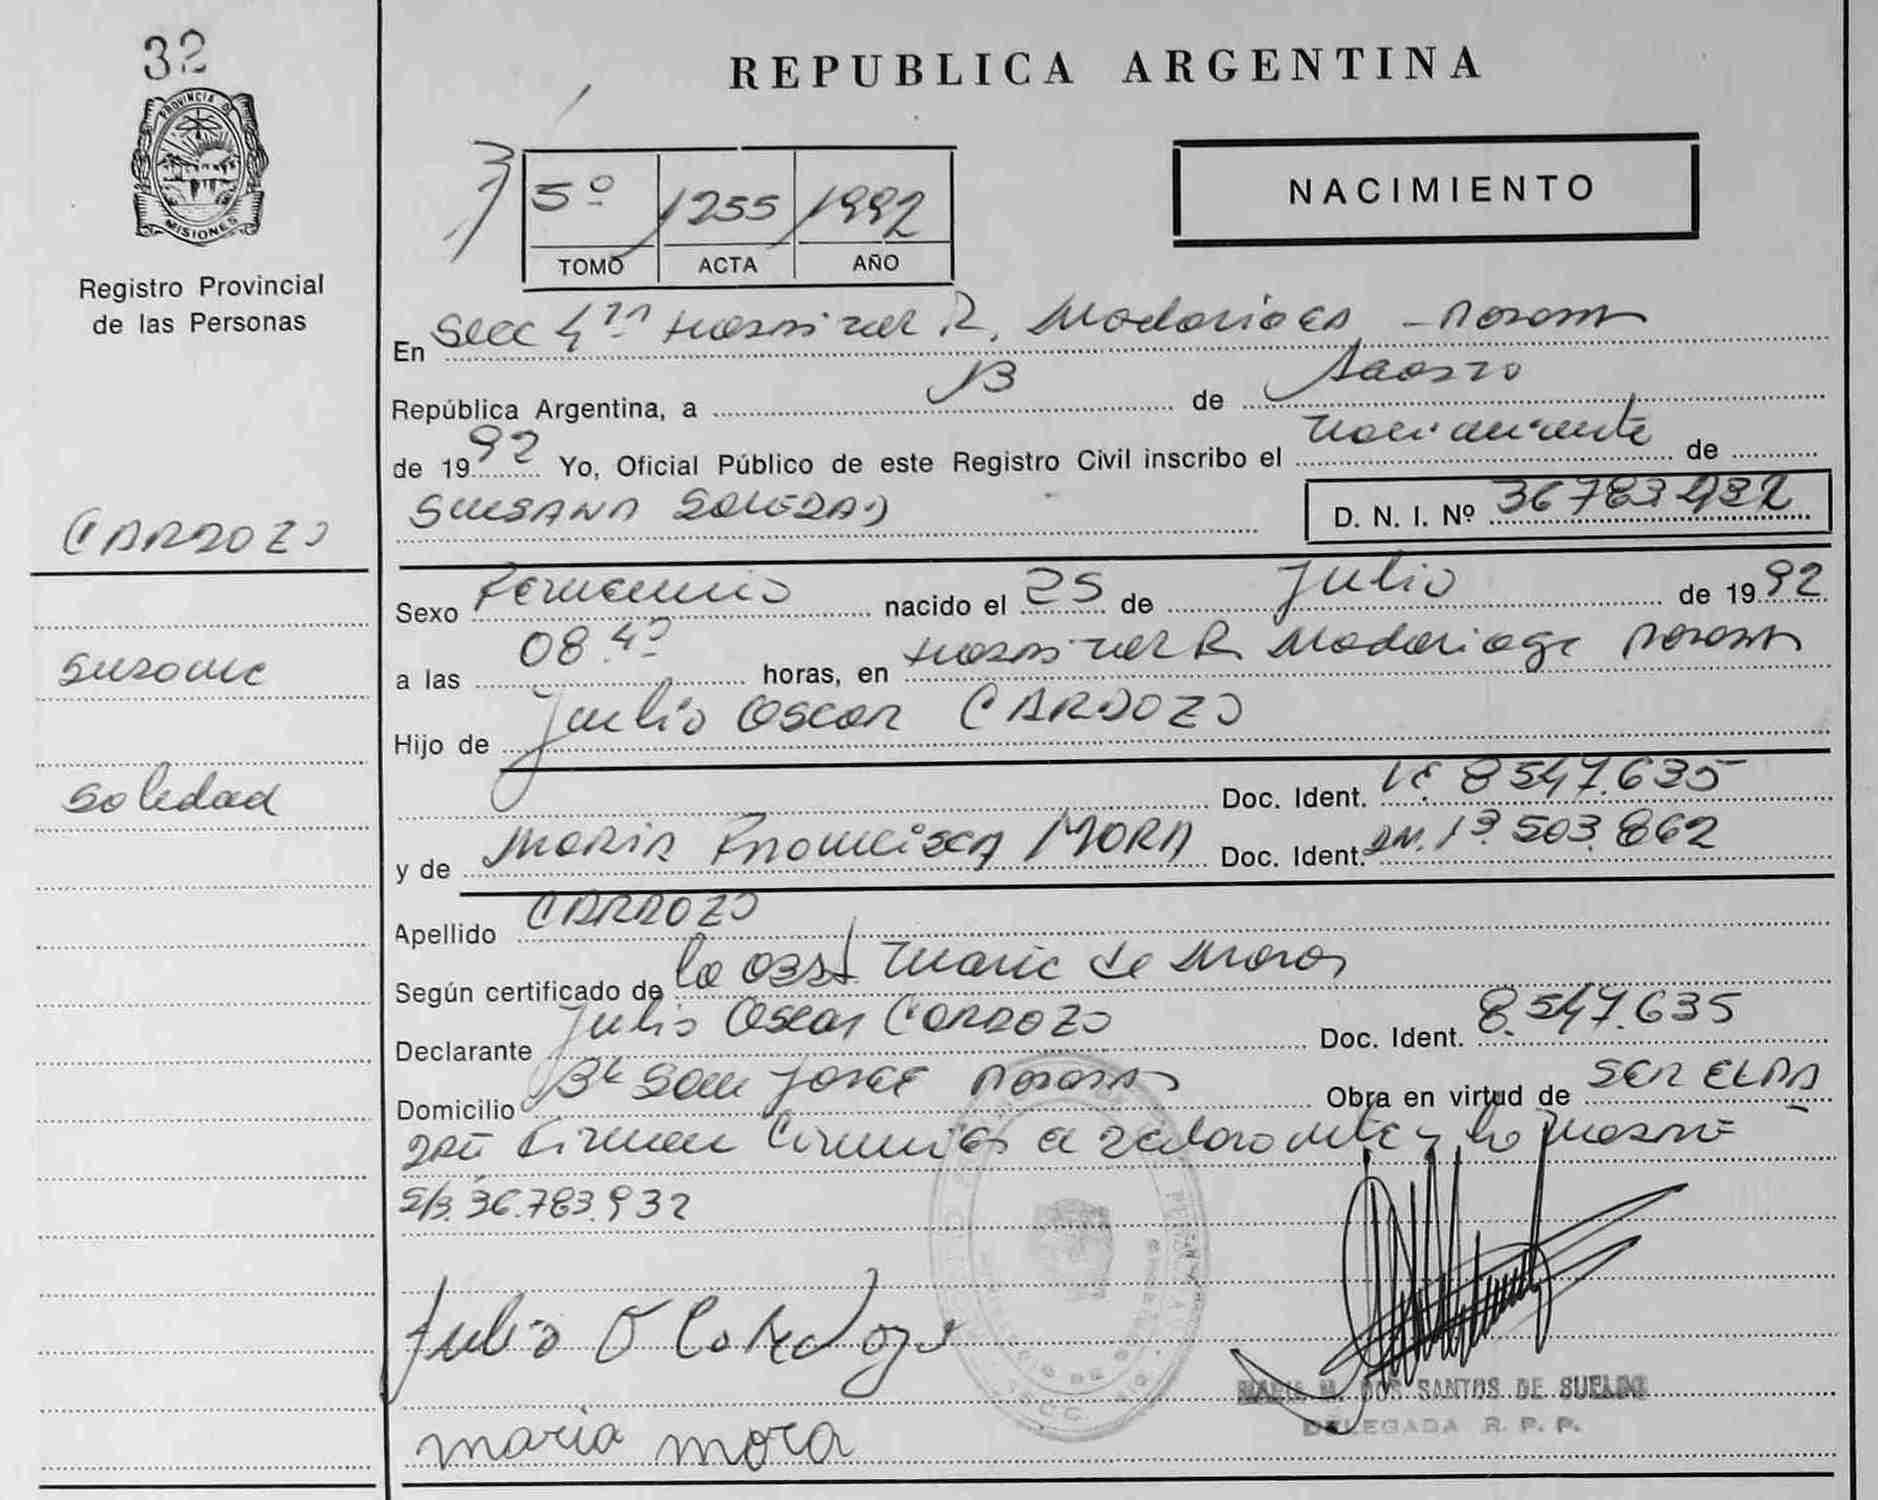 32
PROVINCIA D
MISIONES
Registro Provincial
de las Personas
CARDOZO
Susana
Soledad
REPUBLICA ARGENTINA
NACIMIENTO
5º 1255 1992
TOMO ACTA AÑO
En Secc 4ta Hospital R. Madariaga - Posadas
República Argentina, a 13 de Agosto
de 1992 Yo, Oficial Público de este Registro Civil inscribo el nacimiento de
SUSANA SOLEDAD D. N. I. Nº 36783932
Sexo Femenino nacido el 25 de Julio de 1992
a las 08.40 horas, en Hospital R Madariaga Posadas
Hijo de Julio Oscar CARDOZO
Doc. Ident. LE 8547.635
y de MARIA Francisca MORA Doc. Ident. DNI. 13.503.862
Apellido CARDOZO
Según certificado de la obst Maria de
Declarante Julio Oscar CARDOZO Doc. Ident. 8.547.635
Domicilio Bº San José Posadas Obra en virtud de SER EL PA
DRE Firman Conmigo el declarante y la Madre
S/B. 36.783.932
Julio O Cardozo
maria mora
MARIA M. DOS SANTOS DE SUELDO
DELEGADA R. P. P.